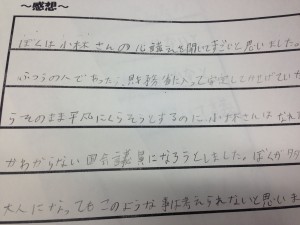 ～感想～
ぼくは小林さんの心話を聞いてすごいと思いました。
ふつうの人であったら、財務省に入って安定したかせげていたか
らそのまま平成にくらそうとするのに小林さんはなれる
かわからない国会議員になろうとしました。ぼくが
大人になってもこのような事は考えられないと思いま